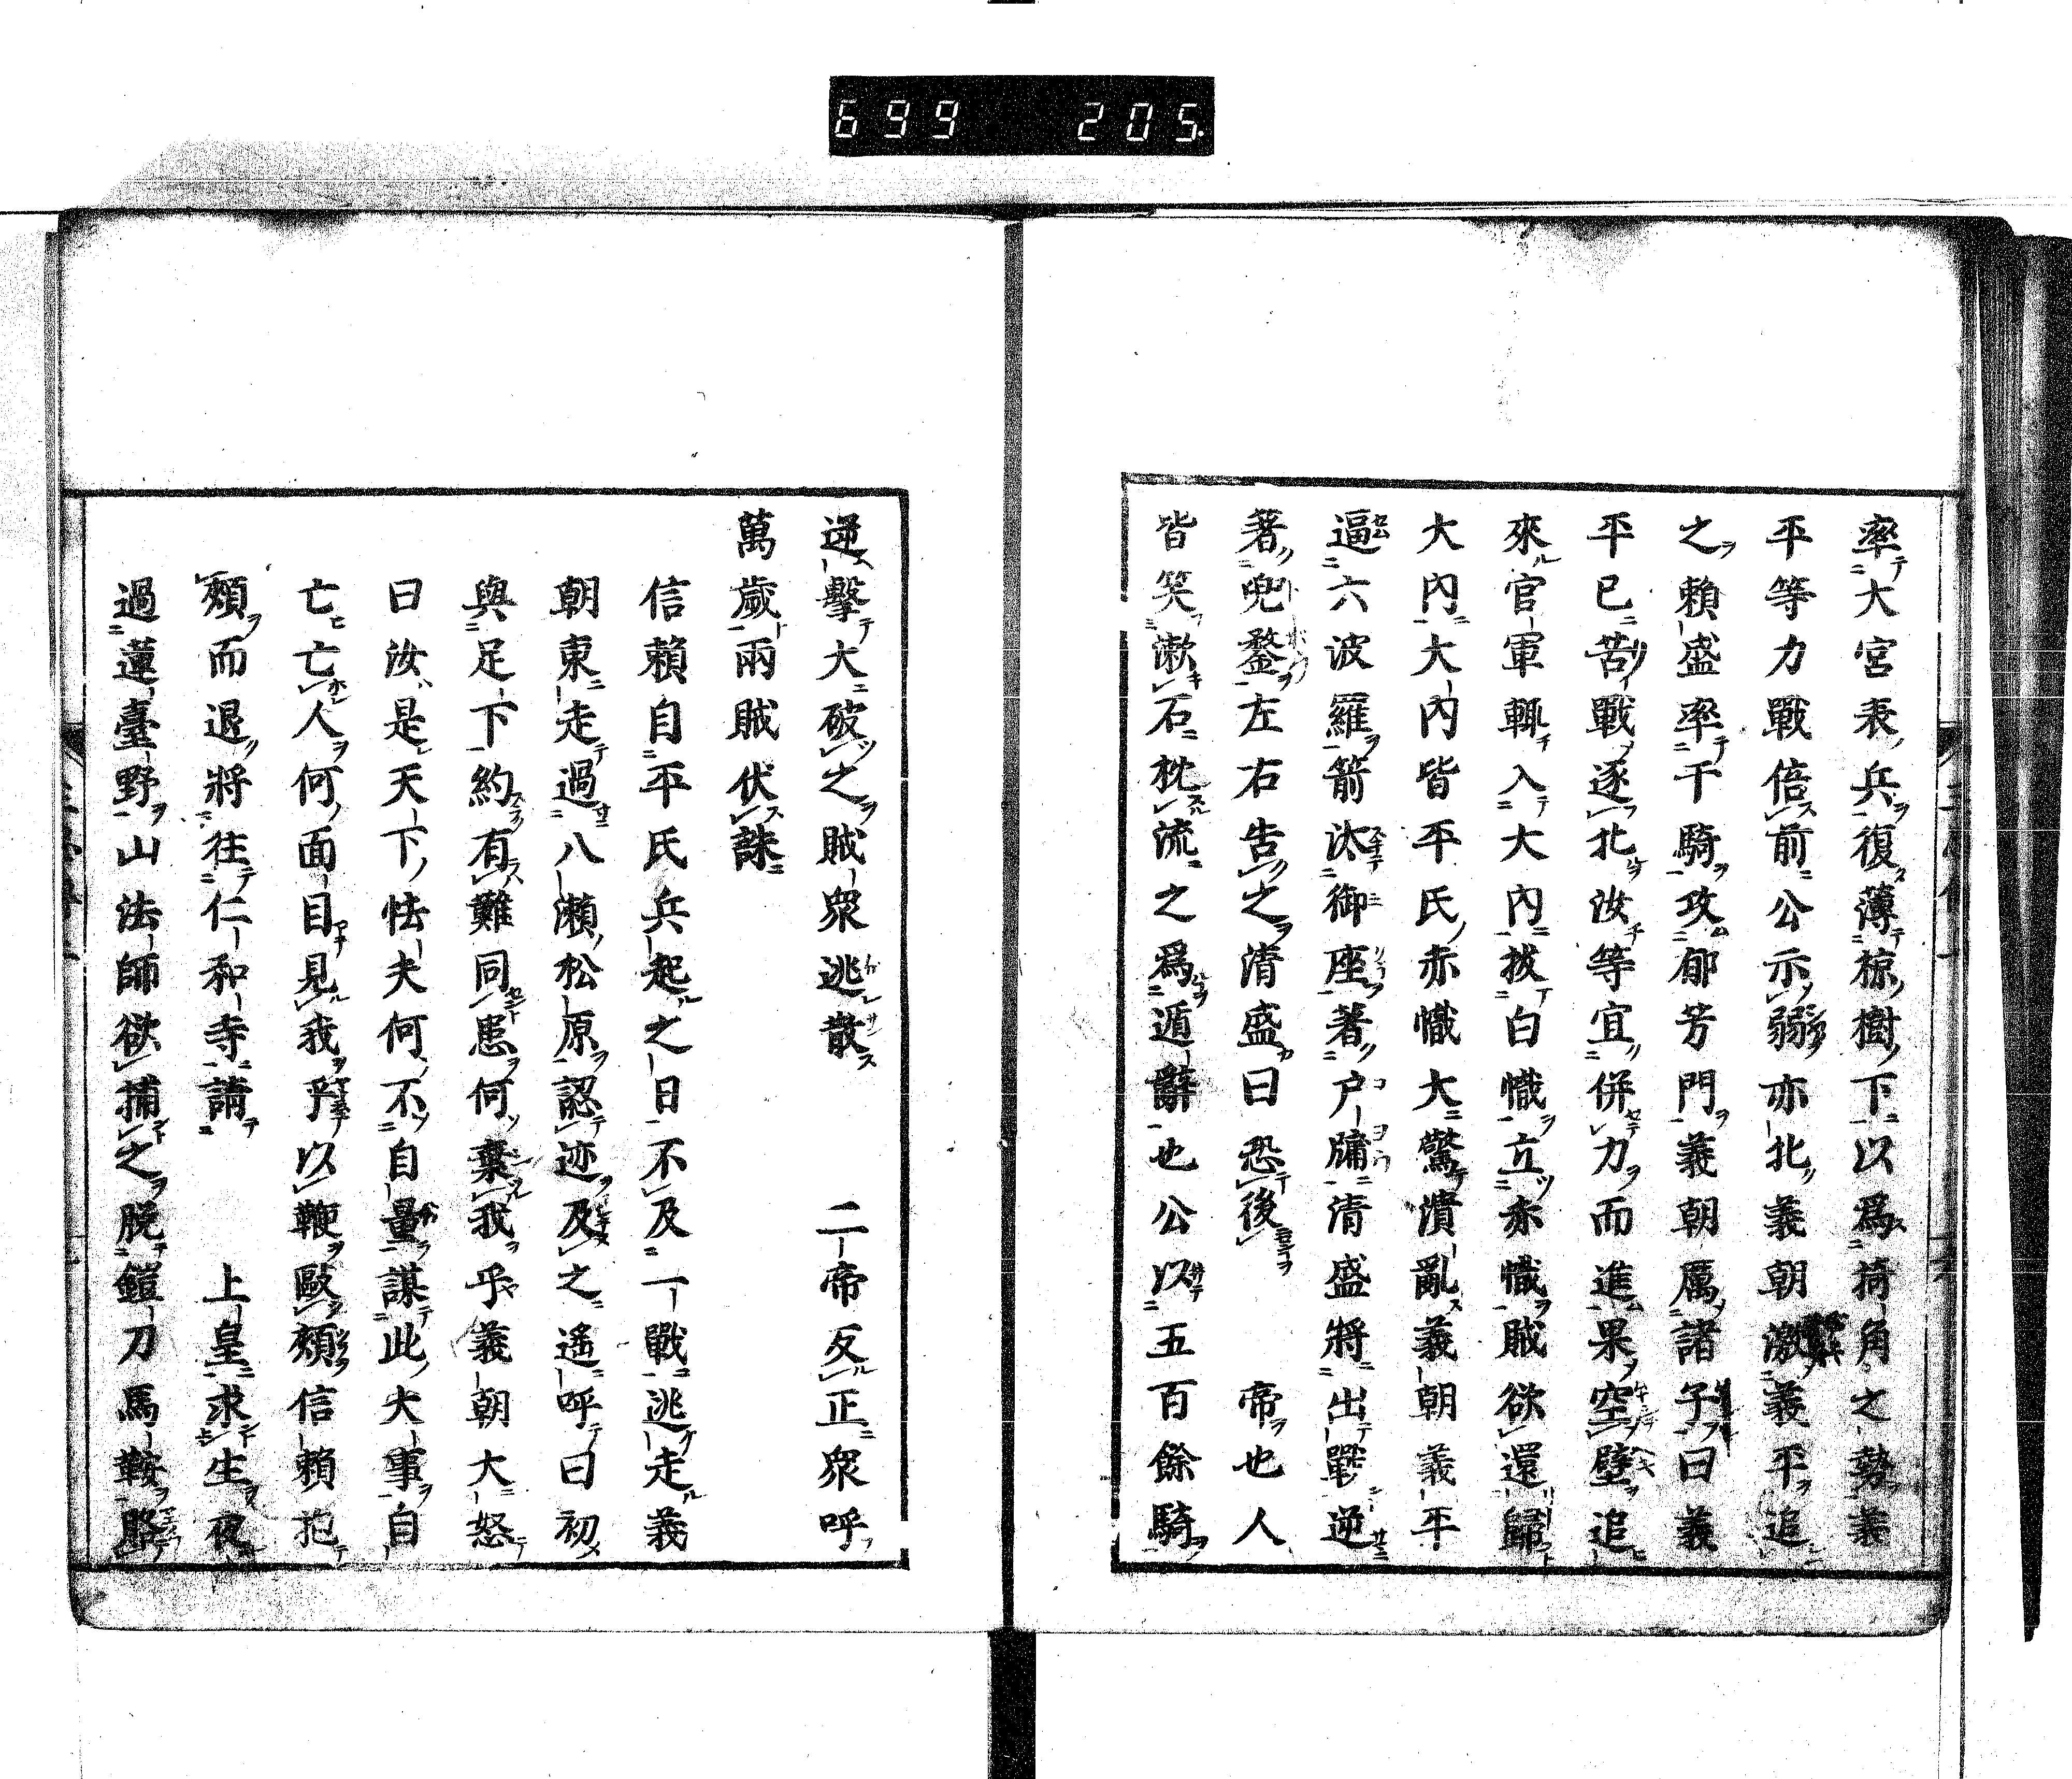 699 205
率大宮表兵復薄椋樹下以爲掎角之勢義
平等力戰倍前公示弱亦北義朝激義平追
之賴盛率千騎攻郁芳門義朝厲諸子曰義
平已苦戰逐北汝等宜併力而進果空壁追
來官軍輙入大內拔白幟立赤幟賊欲還歸
大內大內皆平氏赤幟大驚潰亂義朝義平
逼六波羅箭汰御座著戶牗清盛將出鬱逆
著兜鍪左右告之清盛曰恐後 帝也人
皆笑漱石枕流之爲遁辭也公以五百餘騎
逆擊大破之賊衆逃散 二帝反正衆呼
萬歲兩賊伏誅
信賴自平氏兵起之日不及一戰逃走義
朝東走過八瀨松原認迹及之遙呼曰初
與足下約有難同患何棄我乎義朝大怒
曰汝是天下怯夫何不自量謀此大事自
亡亡人何面目見我乎以鞭歐頰信賴抱
頰而退將往仁和寺請 上皇求生夜
過蓮臺野山法師欲捕之脫鎧刀馬鞍賂